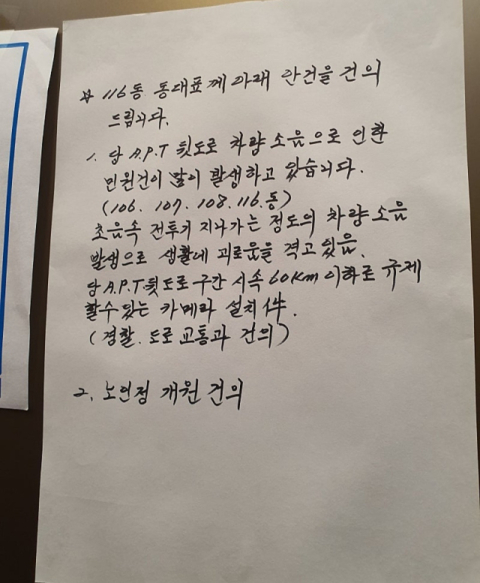 # 116동 동대표께 아래 안건을 건의
드립니다.
1. 당 A.P.T 뒷도로 차량 소음으로 인한
민원건이 많이 발생하고 있습니다.
(106. 107. 108. 116.동)
초음속 전투기 지나가는 정도의 차량 소음
발생으로 생활에 괴로움을 격고 있음.
당 A.P.T 뒷도로 구간 시속 60Km 이하로 규제
할수 있는 카메라 설치 件.
(경찰. 도로교통과 건의)
2. 노인정 개원 건의